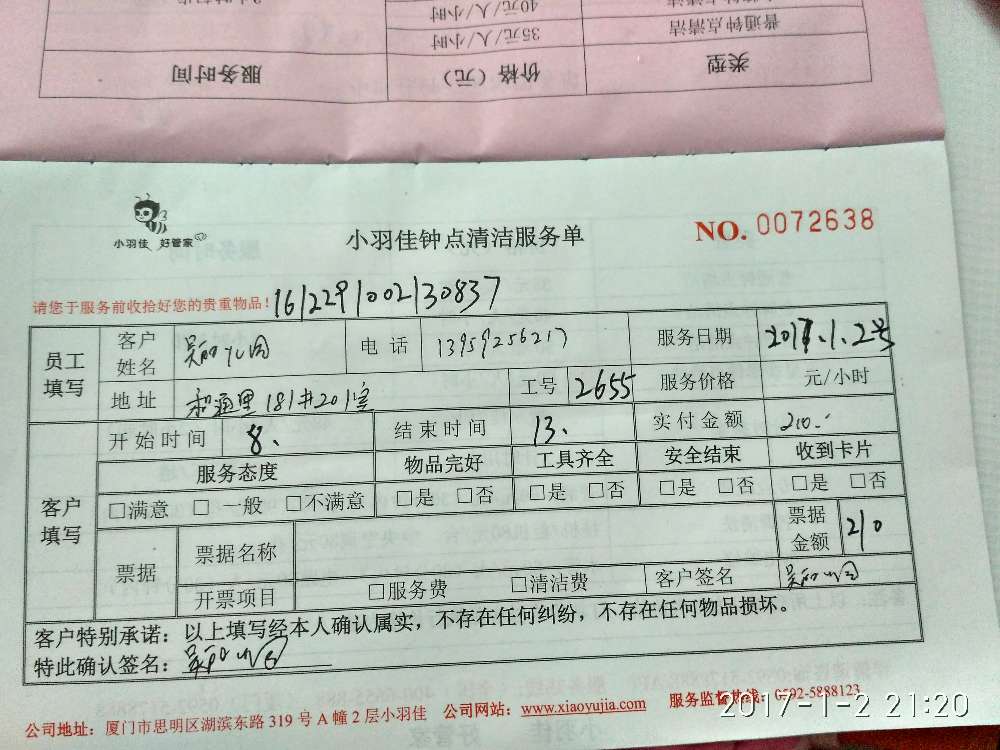 40元/人/小时
普通钟点清洁 35元/人/小时
类型 价格（元） 服务时间
小羽佳 好管家
小羽佳钟点清洁服务单
NO. 0072638
请您于服务前收拾好您的贵重物品！ 1612291002130837
员工填写 客户姓名 电话 13959256217 服务日期 2017.1.2号
地址 181#201室 工号 2655 服务价格 元/小时
客户填写 开始时间 8. 结束时间 13. 实付金额 210.-
服务态度 物品完好 工具齐全 安全结束 收到卡片
□满意 □一般 □不满意 □是 □否 □是 □否 □是 □否 □是 □否
票据 票据名称 票据金额 210
开票项目 □服务费 □清洁费 客户签名
客户特别承诺：以上填写经本人确认属实，不存在任何纠纷，不存在任何物品损坏。
特此确认签名：
公司地址：厦门市思明区湖滨东路 319 号 A 幢 2 层小羽佳 公司网站：www.xiaoyujia.com 服务监督热线：0592-5888123
2017-1-2 21:20